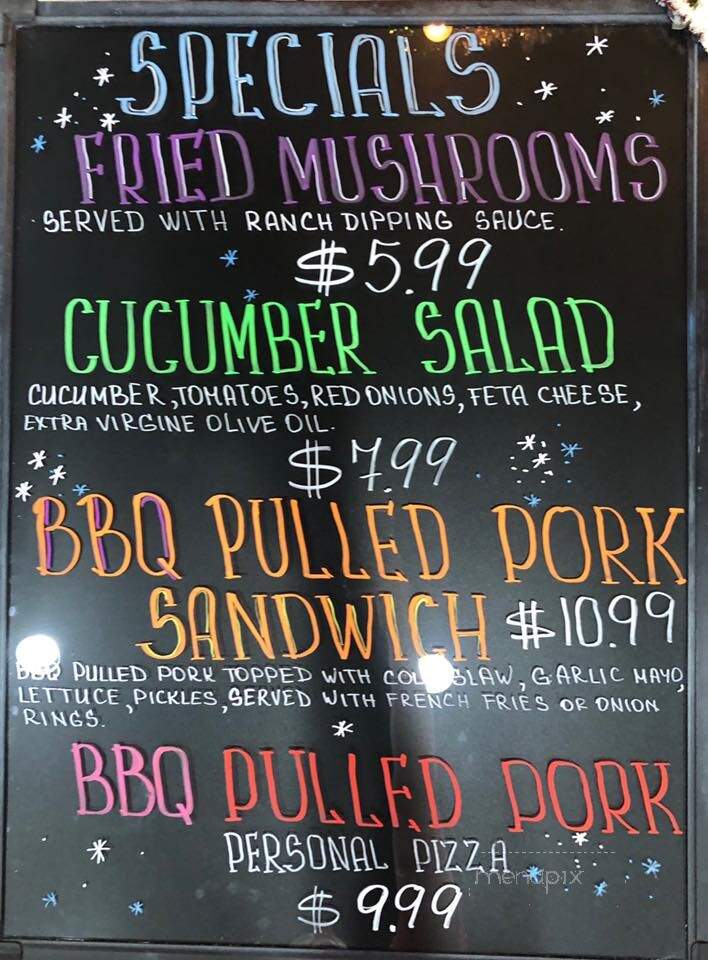 SPECIALS
FRIED MUSHROOMS
SERVED WITH RANCH DIPPING SAUCE.
$5.99
CUCUMBER SALAD
CUCUMBER, TOMATOES, RED ONIONS, FETA CHEESE,
EXTRA VIRGINE OLIVE OIL.
$7.99
BBQ PULLED PORK
SANDWICH $10.99
BBQ PULLED PORK TOPPED WITH COLE SLAW, GARLIC MAYO,
LETTUCE, PICKLES, SERVED WITH FRENCH FRIES OR ONION
RINGS.
BBQ PULLED PORK
PERSONAL PIZZA
menupix
$9.99